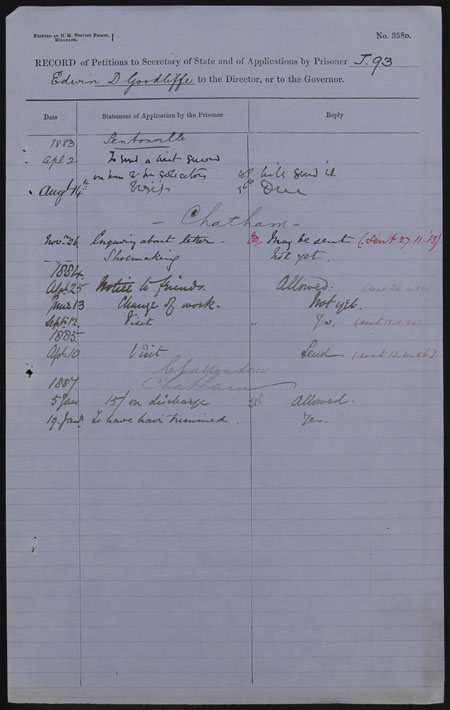 PRINTED AT H. M. SERVICE PRISON, MILLBANK.
No. 358D.
RECORD of Petitions to Secretary of State and of Applications by Prisoner J.93
Edwin D Goodliffe to the Director, or to the Governor.
Date Statement of Application by the Prisoner Reply
1883 Pentonville
Apl 2 To send a
on him & his solicitors will send it
Augt 14th Visit Due
- Chatham -
Nov. 26. Enquiring about letter - May be sent (sent 27.11.83)
- - Shoemaking Not yet.
1884.
Apl 25 Notice to friends. Allowed.
June 13 Change of work. Not yet.
Sept 12. Visit Yes.
1885
Apl. 10 Visit Send
Chattenden
1887 Chatham
5 Jan 15/ on discharge Allowed.
19. Jany To have hair trimmed. Yes.